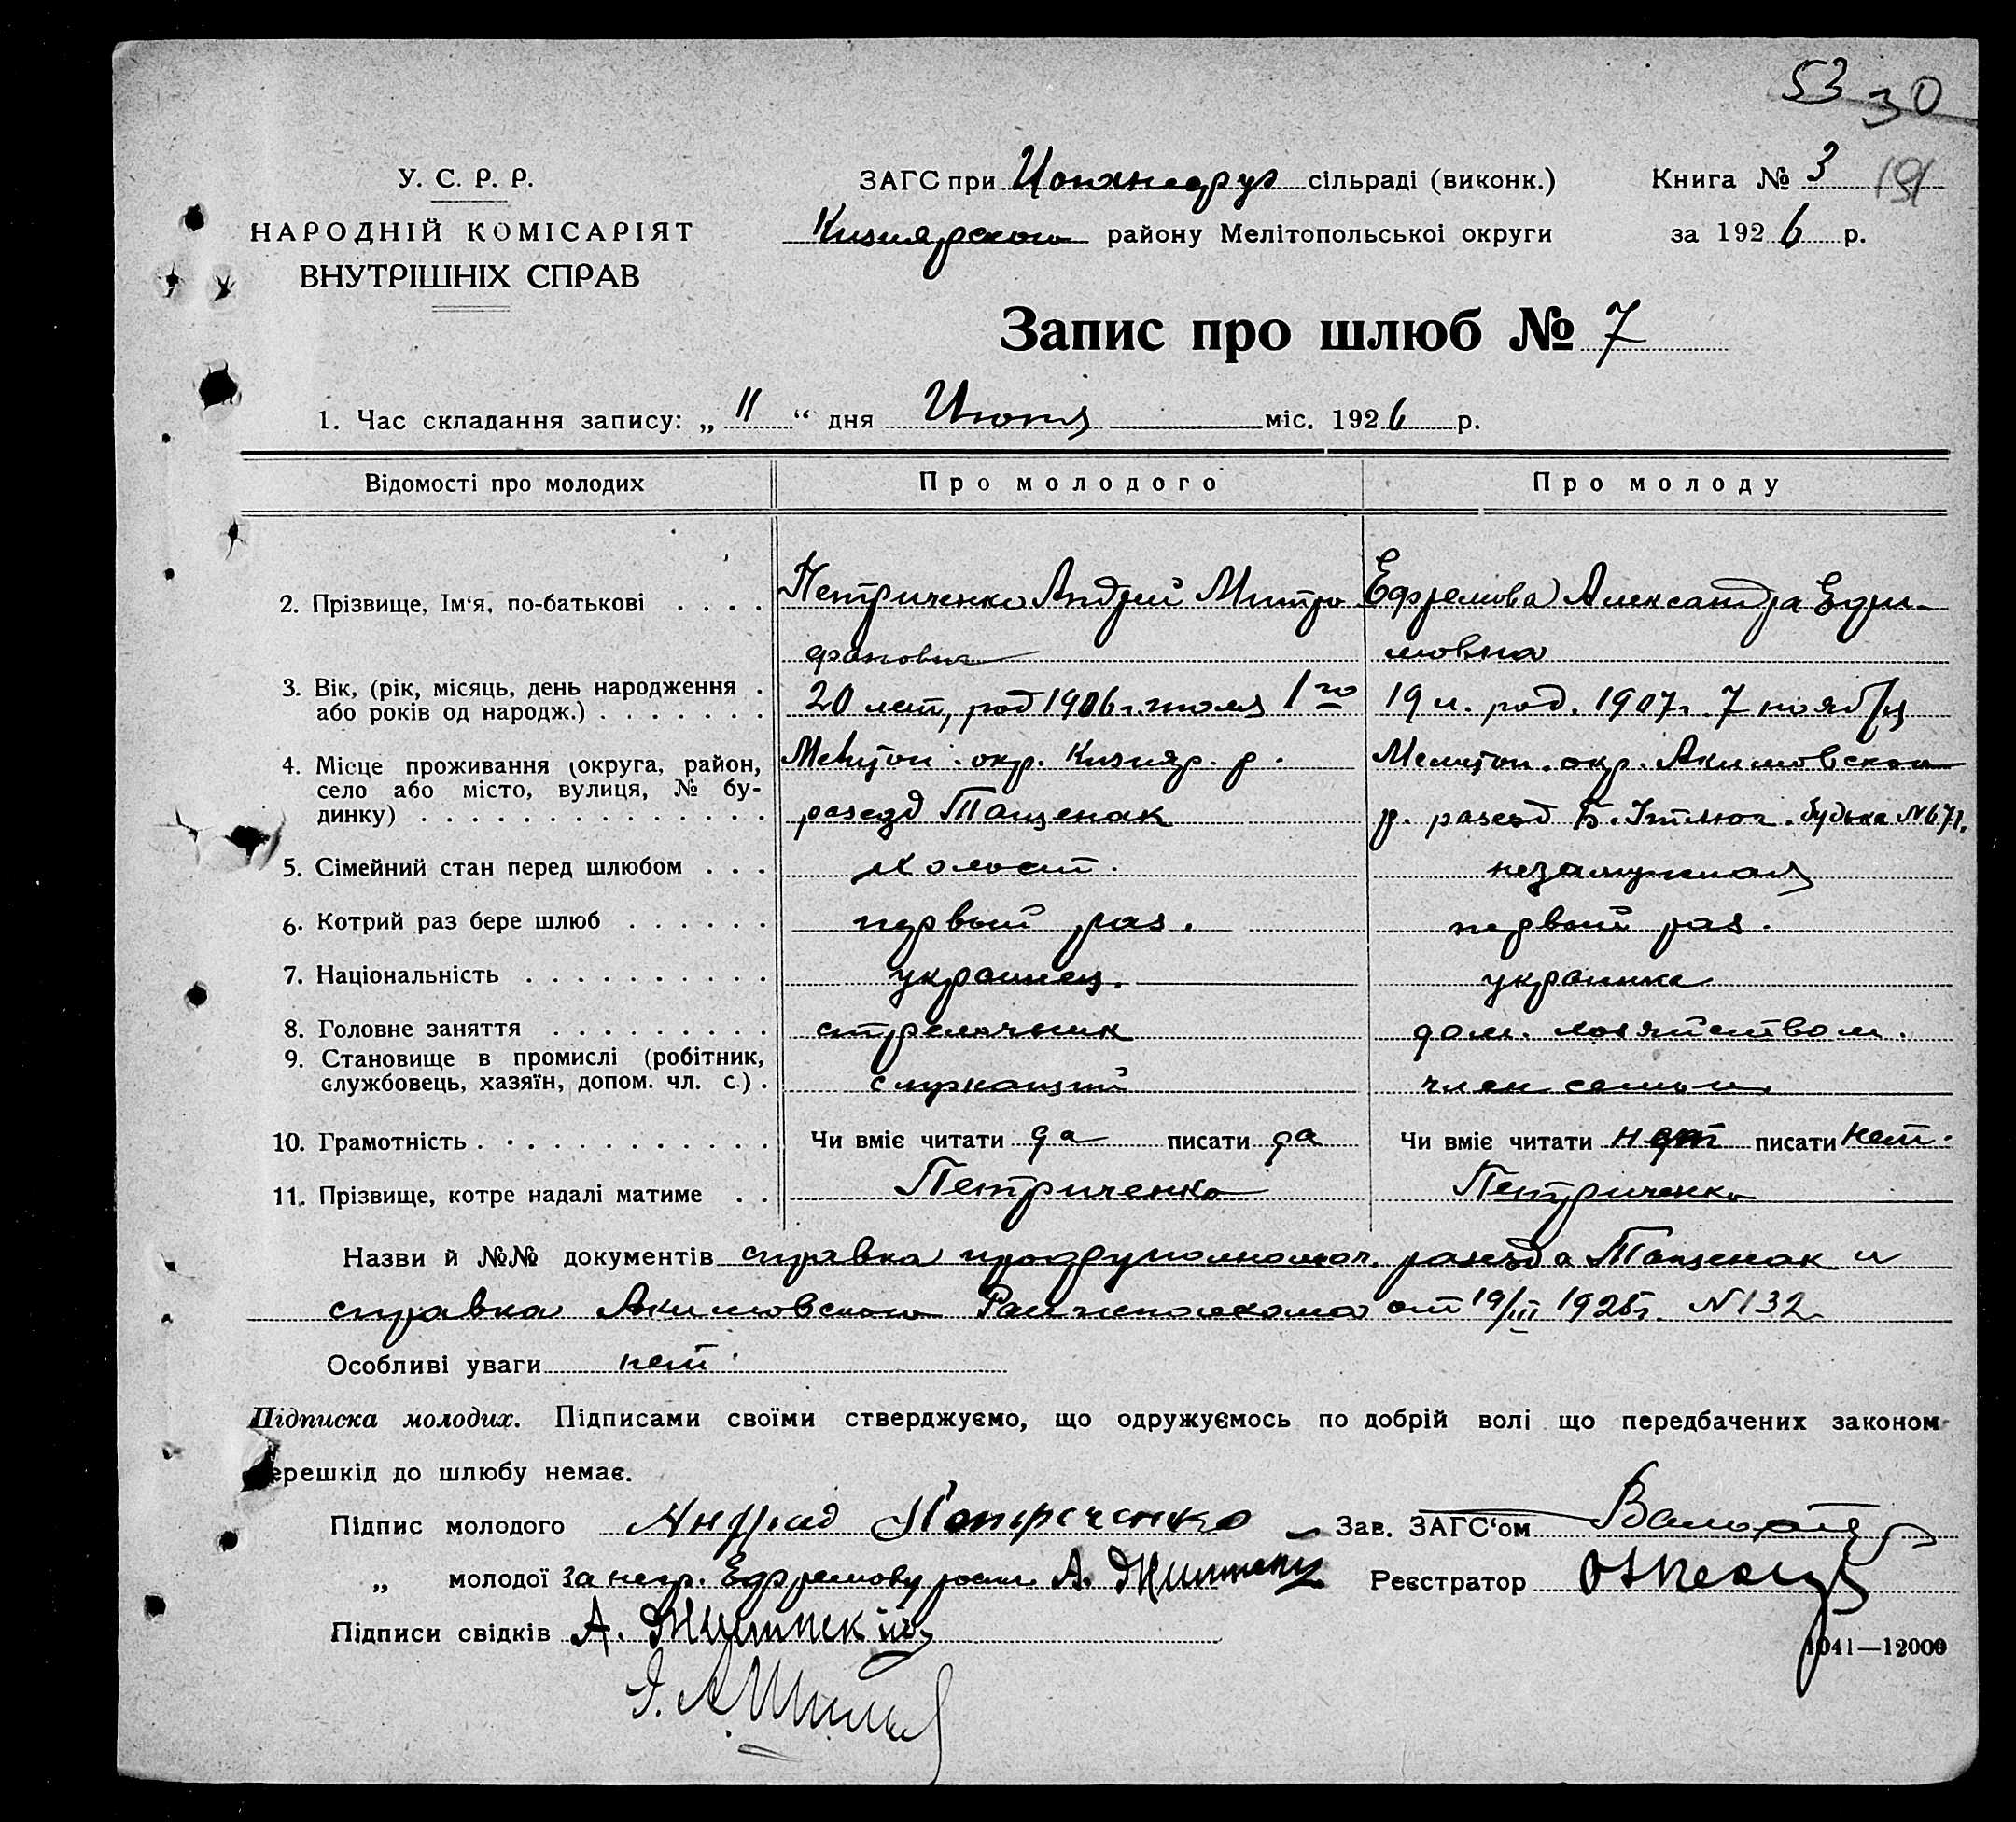 53 30
У. С. Р. Р.
НАРОДНІЙ КОМІСАРІЯТ
ВНУТРІШНІХ СПРАВ
ЗАГС при сільраді (виконк.)
Книга № 3 191
Кизиярского району Мелітопольської округи
за 1926 р.
Запис про шлюб № 7
1. Час складання запису: „ 11 “ дня міс. 1926 р.
Відомості про молодих
Про молодого
Про молоду
2. Прізвище, Ім‘я, по-батькові
Петриченко Андрей Митро
фанович
Ефремова Александра Ефи-
мовна
3. Вік, (рік, місяць, день народження
або років од народж.)
20 лет, род 1906 г. июля 1 го
19 л. род. 1907 г. 7 ноября
4. Місце проживання (округа, район,
село або місто, вулиця, № бу-
динку)
Мелитоп. окр. Кизияр. р.
разезд Тащенак
Мелитоп. окр. Акимовского
р. разезд Б. Утлюг. будька № 671.
5. Сімейний стан перед шлюбом
холост.
незамужная
6. Котрий раз бере шлюб
первый раз.
первый раз.
7. Національність
украинец.
украинка
8. Головне заняття
стрелочник
дом. хозяйством.
9. Становище в промислі (робітник,
службовець, хазяїн, допом. чл. с.)
служащий
член семьи
10. Грамотність
Чи вміє читати да писати да
Чи вміє читати нет писати нет.
11. Прізвище, котре надалі матиме
Петриченко
Петриченко
Назви й №№ документів справка разезда Тащенак и
справка Акимовского Райисполкома от 19/III 1926 г. № 132
Особливі уваги нет.
Підписка молодих. Підписами своїми стверджуємо, що одружуємось по добрій волі що передбачених законом
перешкід до шлюбу немає.
Підпис молодого Петреченко
Зав. ЗАГС‘ом
„ молодої За негр. Ефремову росп. А.
Реєстратор
Підписи свідків А.
1041—12000